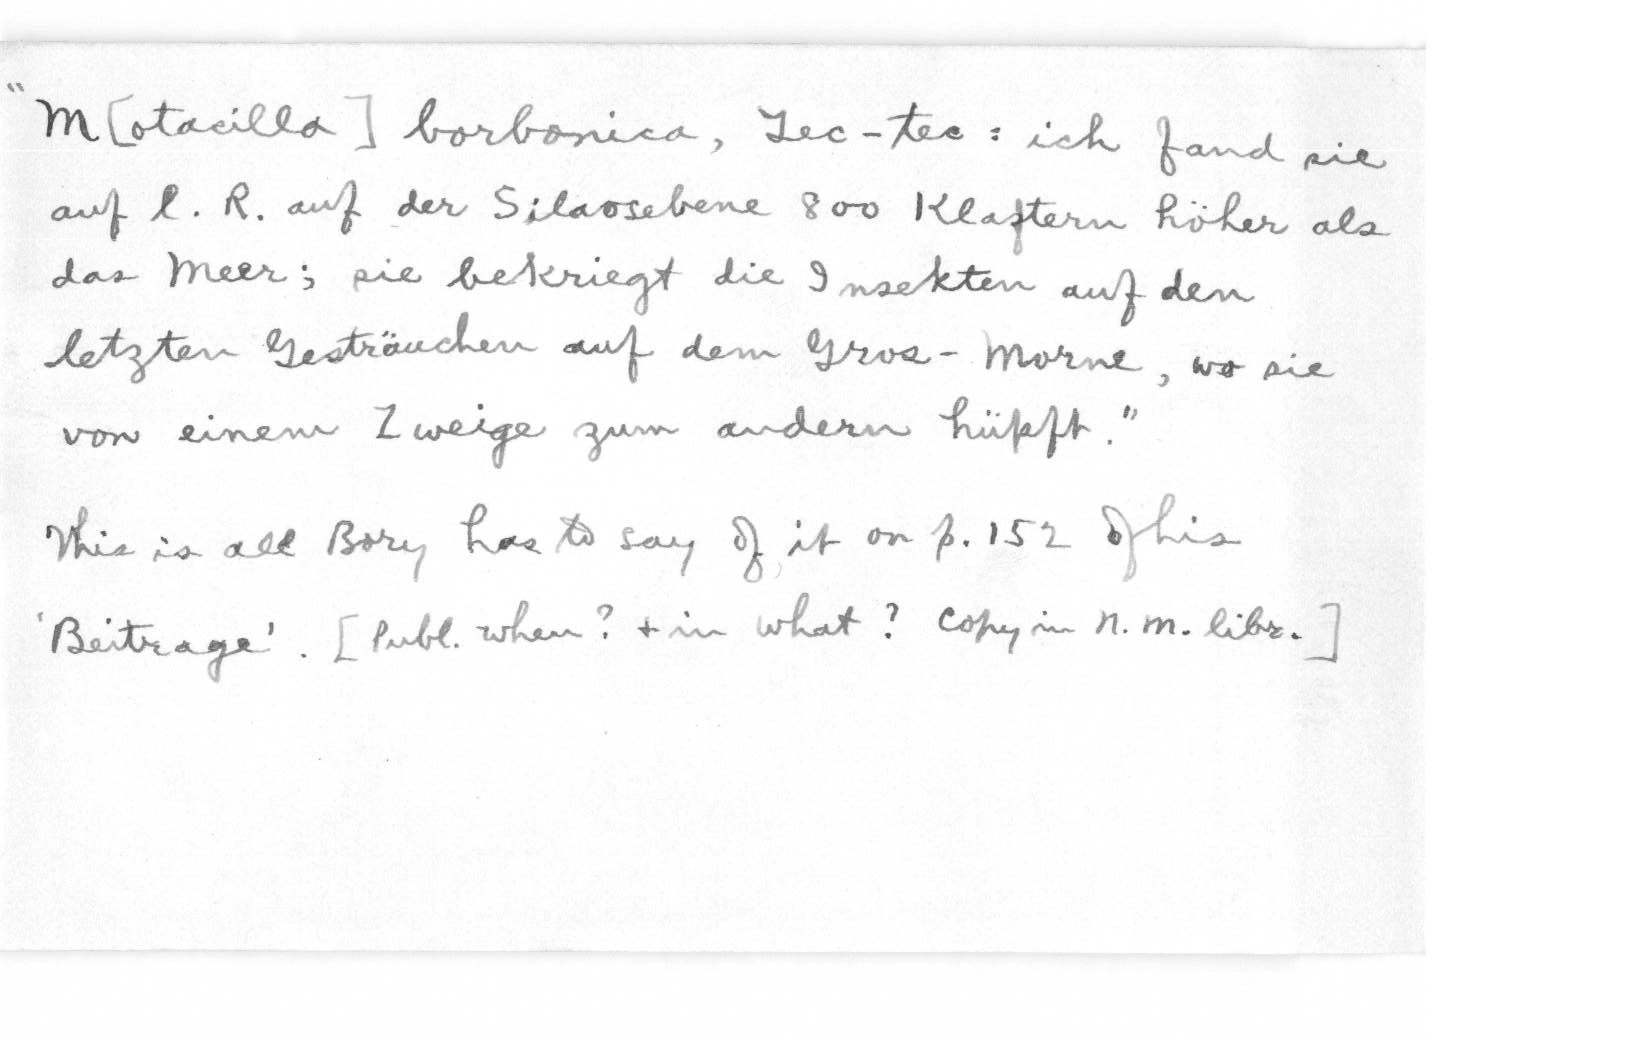 "M[otacilla] borbonica, Tec-tec: ich fand sie
auf l. R. auf der Silaosebene 800 Klaftern höher als
das Meer; sie bekriegt die Insekten auf den
letzten Gesträuchen auf dem Gros-Morne, wo sie
von einem Zweige zum andern hüpft."
This is all Bory has to say of it on p. 152 of his
'Beitrage'. [Publ. when? + in what? Copy in N.M. libr.]